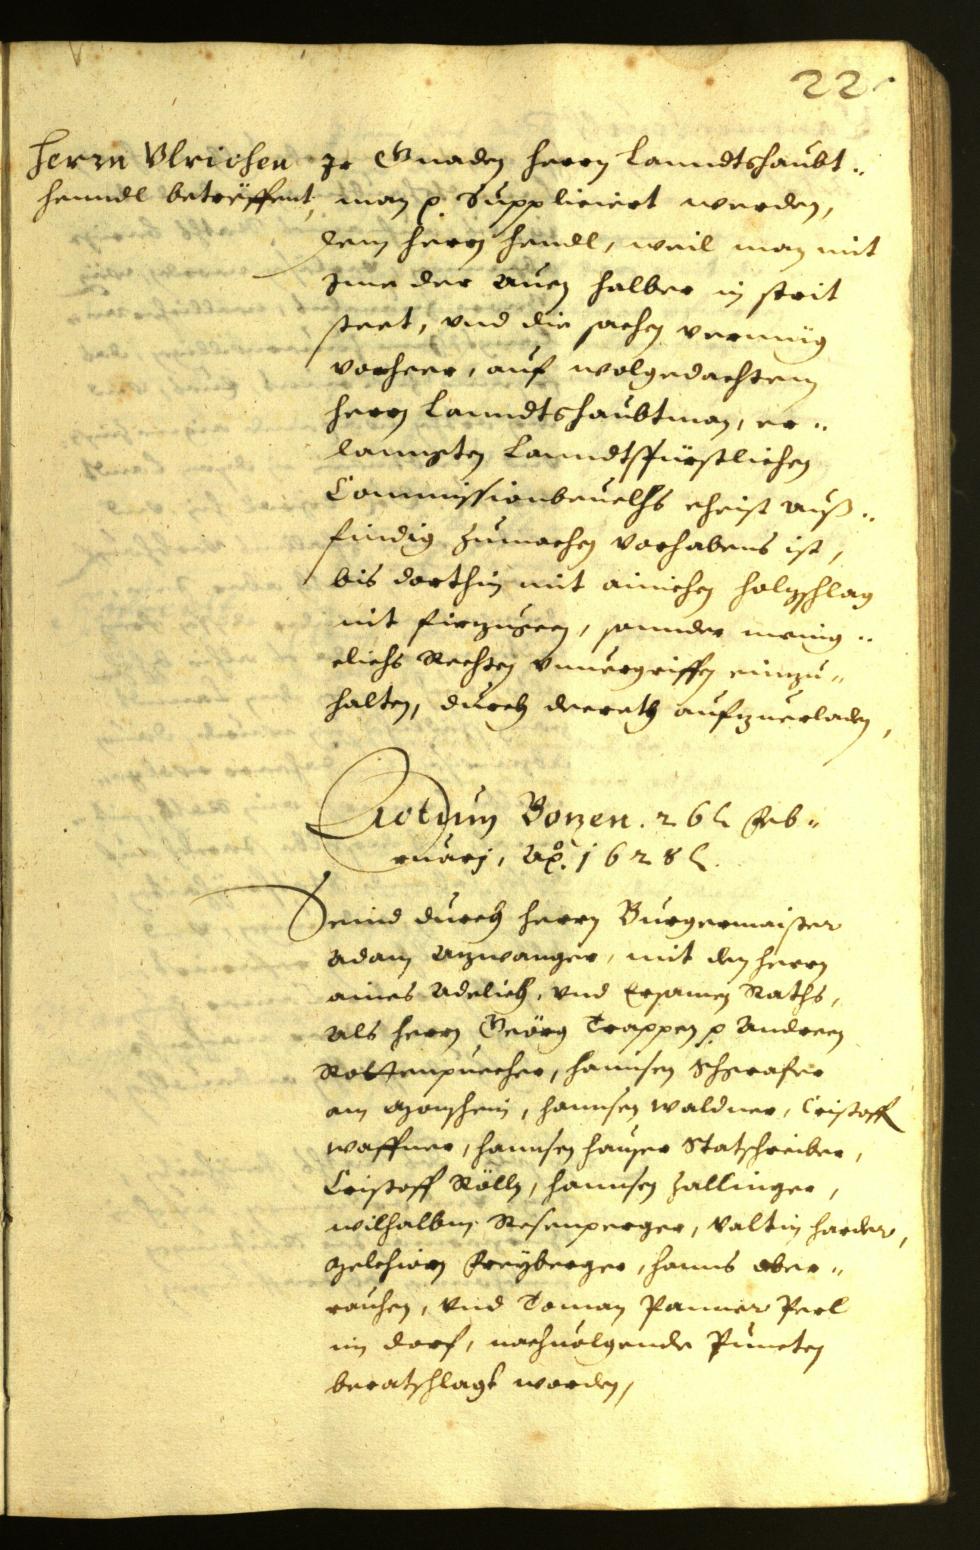 22
Herrn Ulrichen
Henndl betreffent,
Ir Gnaden Herrn Lanndtshaubt¬
man p. Suppliciert werden,
dem Herrn Hendl, weil man mit
Ime der Auen halber in strit
steet, vnd die sachen vermüg
vorheer, auf wolgedachtem
Herrn Lanndtshaubtman, er¬
lanngten Lanndtsfürstlichen
Commissionbeuelhs ehist auß¬
findig zumachen vorhabens ist,
bis dorthin mit ainichen holzschlag
nit firzugeen, sonnder menig¬
elichs Rechten vnuergriffen einzu¬
halten, durch decreth aufzuerladen,
Actum Bozen. 26 Feb¬
ruarj, Ao. 1628
Seind durch Herrn Burgermaister
Adam Azwanger, mit den Herrn
aines Adelich, vnd Ersamen Raths,
Als Herrn Geörg Trappen p Andreen
Rottenpuecher, Hannsen Schgrafer
am Hannsen Waldner, Cristoff
Waffner, Hannsen Hauser Statschreiber,
Cristoff Röll, Hannsen Zallinger,
Wilhalbm Rosenperger, Valtin Harder,
Melchiorn Freyberger, Hanns Ober¬
rauhen, vnd Toman Panner Perl
im dorf, nachuolgende Puncten
beratschlagt worden,